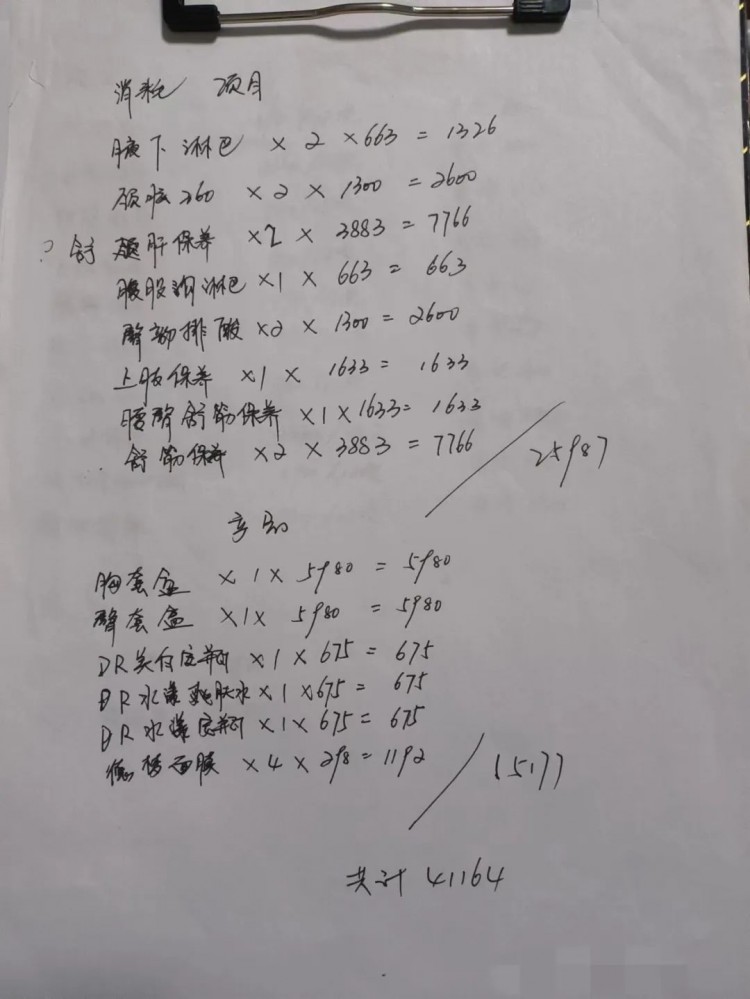 消耗 项目
腋下淋巴 × 2 × 663 = 1326
260 × 2 × 1300 = 2600
? 舒 肝保养 × 2 × 3883 = 7766
腹股沟淋巴 × 1 × 663 = 663
臀部排酸 × 2 × 1300 = 2600
上肢保养 × 1 × 1633 = 1633
腰臀舒筋保养 × 1 × 1633 = 1633
舒筋保养 × 2 × 3883 = 7766
25987
产品
胸套盒 × 1 × 5980 = 5980
臀套盒 × 1 × 5980 = 5980
DR美白 × 1 × 675 = 675
DR水漾 肤水 × 1 × 675 = 675
DR水漾 × 1 × 675 = 675
面膜 × 4 × 298 = 1192
15177
共计 41164